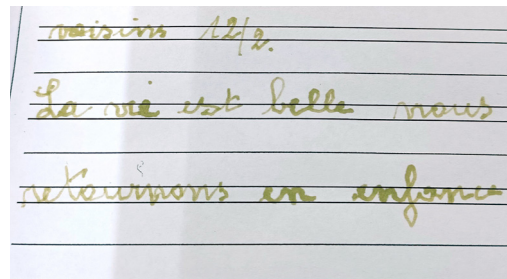 voisins 12/2.
La vie est belle nous
retournons en enfance